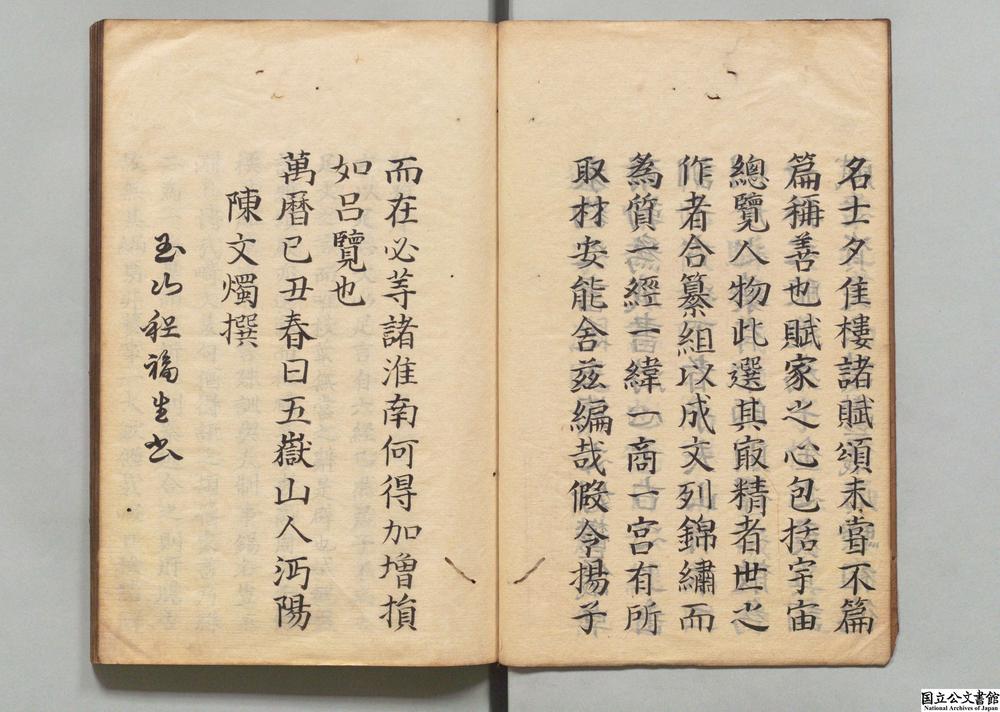 名士夕隹樓諸賦頌未甞不篇
篇稱善也賦家之心包括宇宙
總覽人物此選其㝡精者世之
作者合纂組以成文列錦繡而
為質一經一緯一商一宮有所
取材安能舍茲編哉假令揚子
而在必等諸淮南何得加增損
如呂覽也
萬曆己丑春日五嶽山人沔陽
陳文燭撰
玉山程福生書
国立公文書館
National Archives of Japan